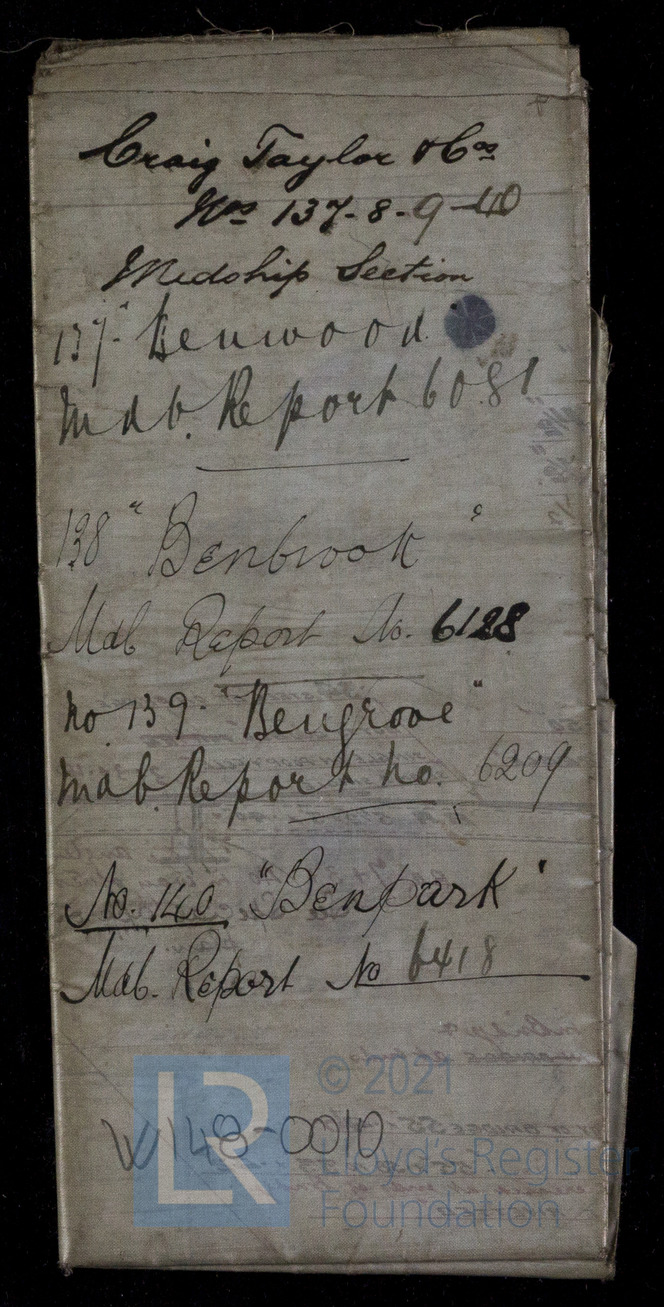 Craig Taylor & Cos
Nos 137-8-9-40
Midship Section
137 "Benwood"
Mdb. Report 6081
138 "Benbrook"
Mdb Report No. 6128
No 139 - "Bengrove"
Mdb. Report No. 6209
No. 140 "Benpark"
Mdb. Report No 6418
W148-0010
LR
© 2021
Lloyd's Register
Foundation